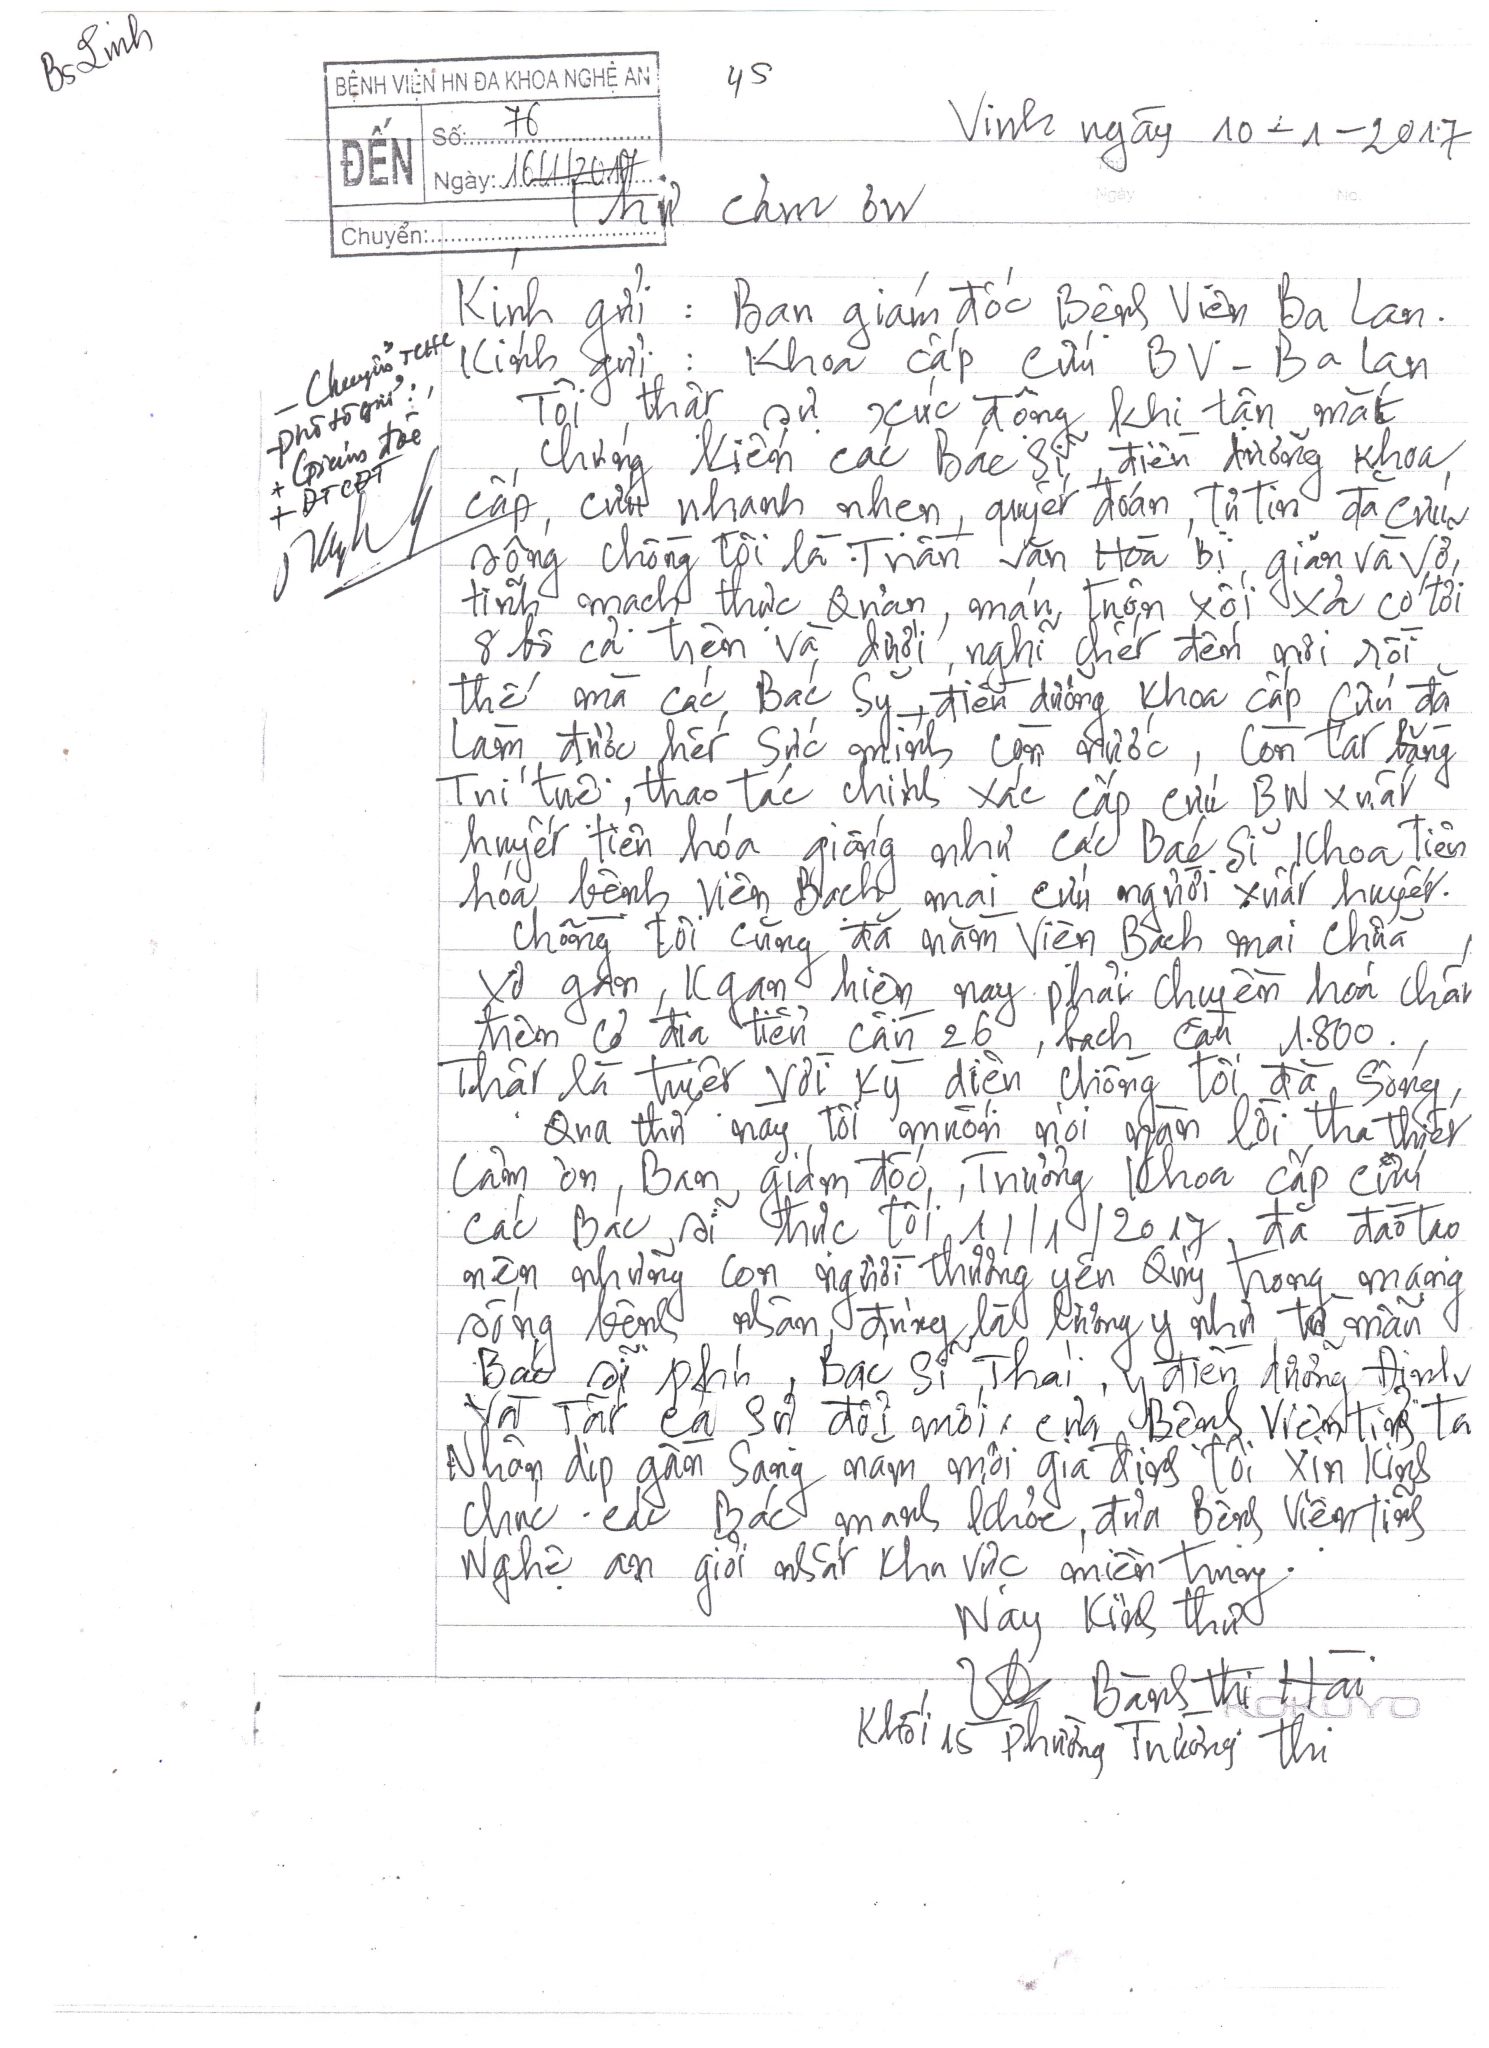 Bs Linh
BỆNH VIỆN HN ĐA KHOA NGHỆ AN
ĐẾN
Số: 76
Ngày: 16/1/2017
Chuyển:
45
Vinh ngày 10-1-2017
Ngày No.
Thư cảm ơn
Kính gửi : Ban giám đốc Bệnh Viện Ba Lan.
Kính gửi : Khoa cấp cứu BV - Ba Lan
- Chuyển TCHC
phô tô gửi :
+ Giám đốc
+ ĐTCĐT
Tôi thật sự xúc động khi tận mắt
chứng kiến các Bác Sĩ, điều dưỡng khoa
cấp cứu nhanh nhẹn, quyết đoán, tự tin đã cứu
sống chồng tôi là Trần Văn Hòa bị giãn và vỡ
tĩnh mạch thực Quản, máu tuôn xối xả có tới
8 bô cả trên và dưới, nghĩ chết đến nơi rồi
thế mà các Bác Sỹ, điều dưỡng khoa cấp cứu đã
làm được hết sức mình còn nước, còn tát bằng
Trí tuệ, thao tác chính xác cấp cứu BN xuất
huyết tiêu hóa giống như các Bác Sĩ Khoa tiêu
hóa bệnh viện Bạch mai cứu người xuất huyết.
Chồng tôi cũng đã nằm viện Bạch mai chữa
xơ gan, K gan hiện nay phải chuyền hoá chất
trên cơ địa tiểu cầu 26, bạch cầu 1.800.
Thật là tuyệt vời kỳ diệu chồng tôi đã sống,
Qua thư này tôi muốn nói ngàn lời tha thiết
cảm ơn, Ban giám đốc, Trưởng Khoa cấp cứu
các Bác sĩ trực tối 1/1/2017 đã đào tạo
nên những con người thương yêu Quý trọng mạng
sống bệnh nhân, đúng là lương y như từ mẫu
Bác sĩ Phú, Bác Sĩ Thái, y điều dưỡng Định
Và Tất cả Sự đổi mới của Bệnh Viện tỉnh ta
Nhân dịp gần sang năm mới gia đình tôi xin Kính
chúc các Bác mạnh khỏe, đưa Bệnh Viện tỉnh
Nghệ an giỏi nhất khu vực miền trung.
Nay Kính thư
Bành Thị Hài
KOKUYO
Khối 15 Phường Trường Thi